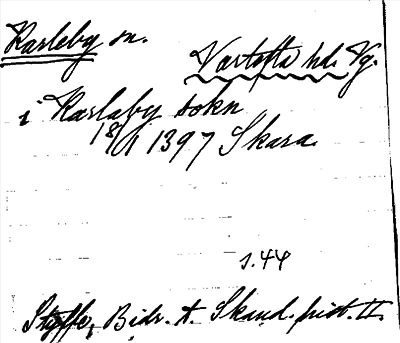 Karleby sn.
Vartofta hd. Vg.
i Karlaby sokn
18/1 1397 Skara.
s. 44
Styffe, Bidr. t. Skand. hist. II.